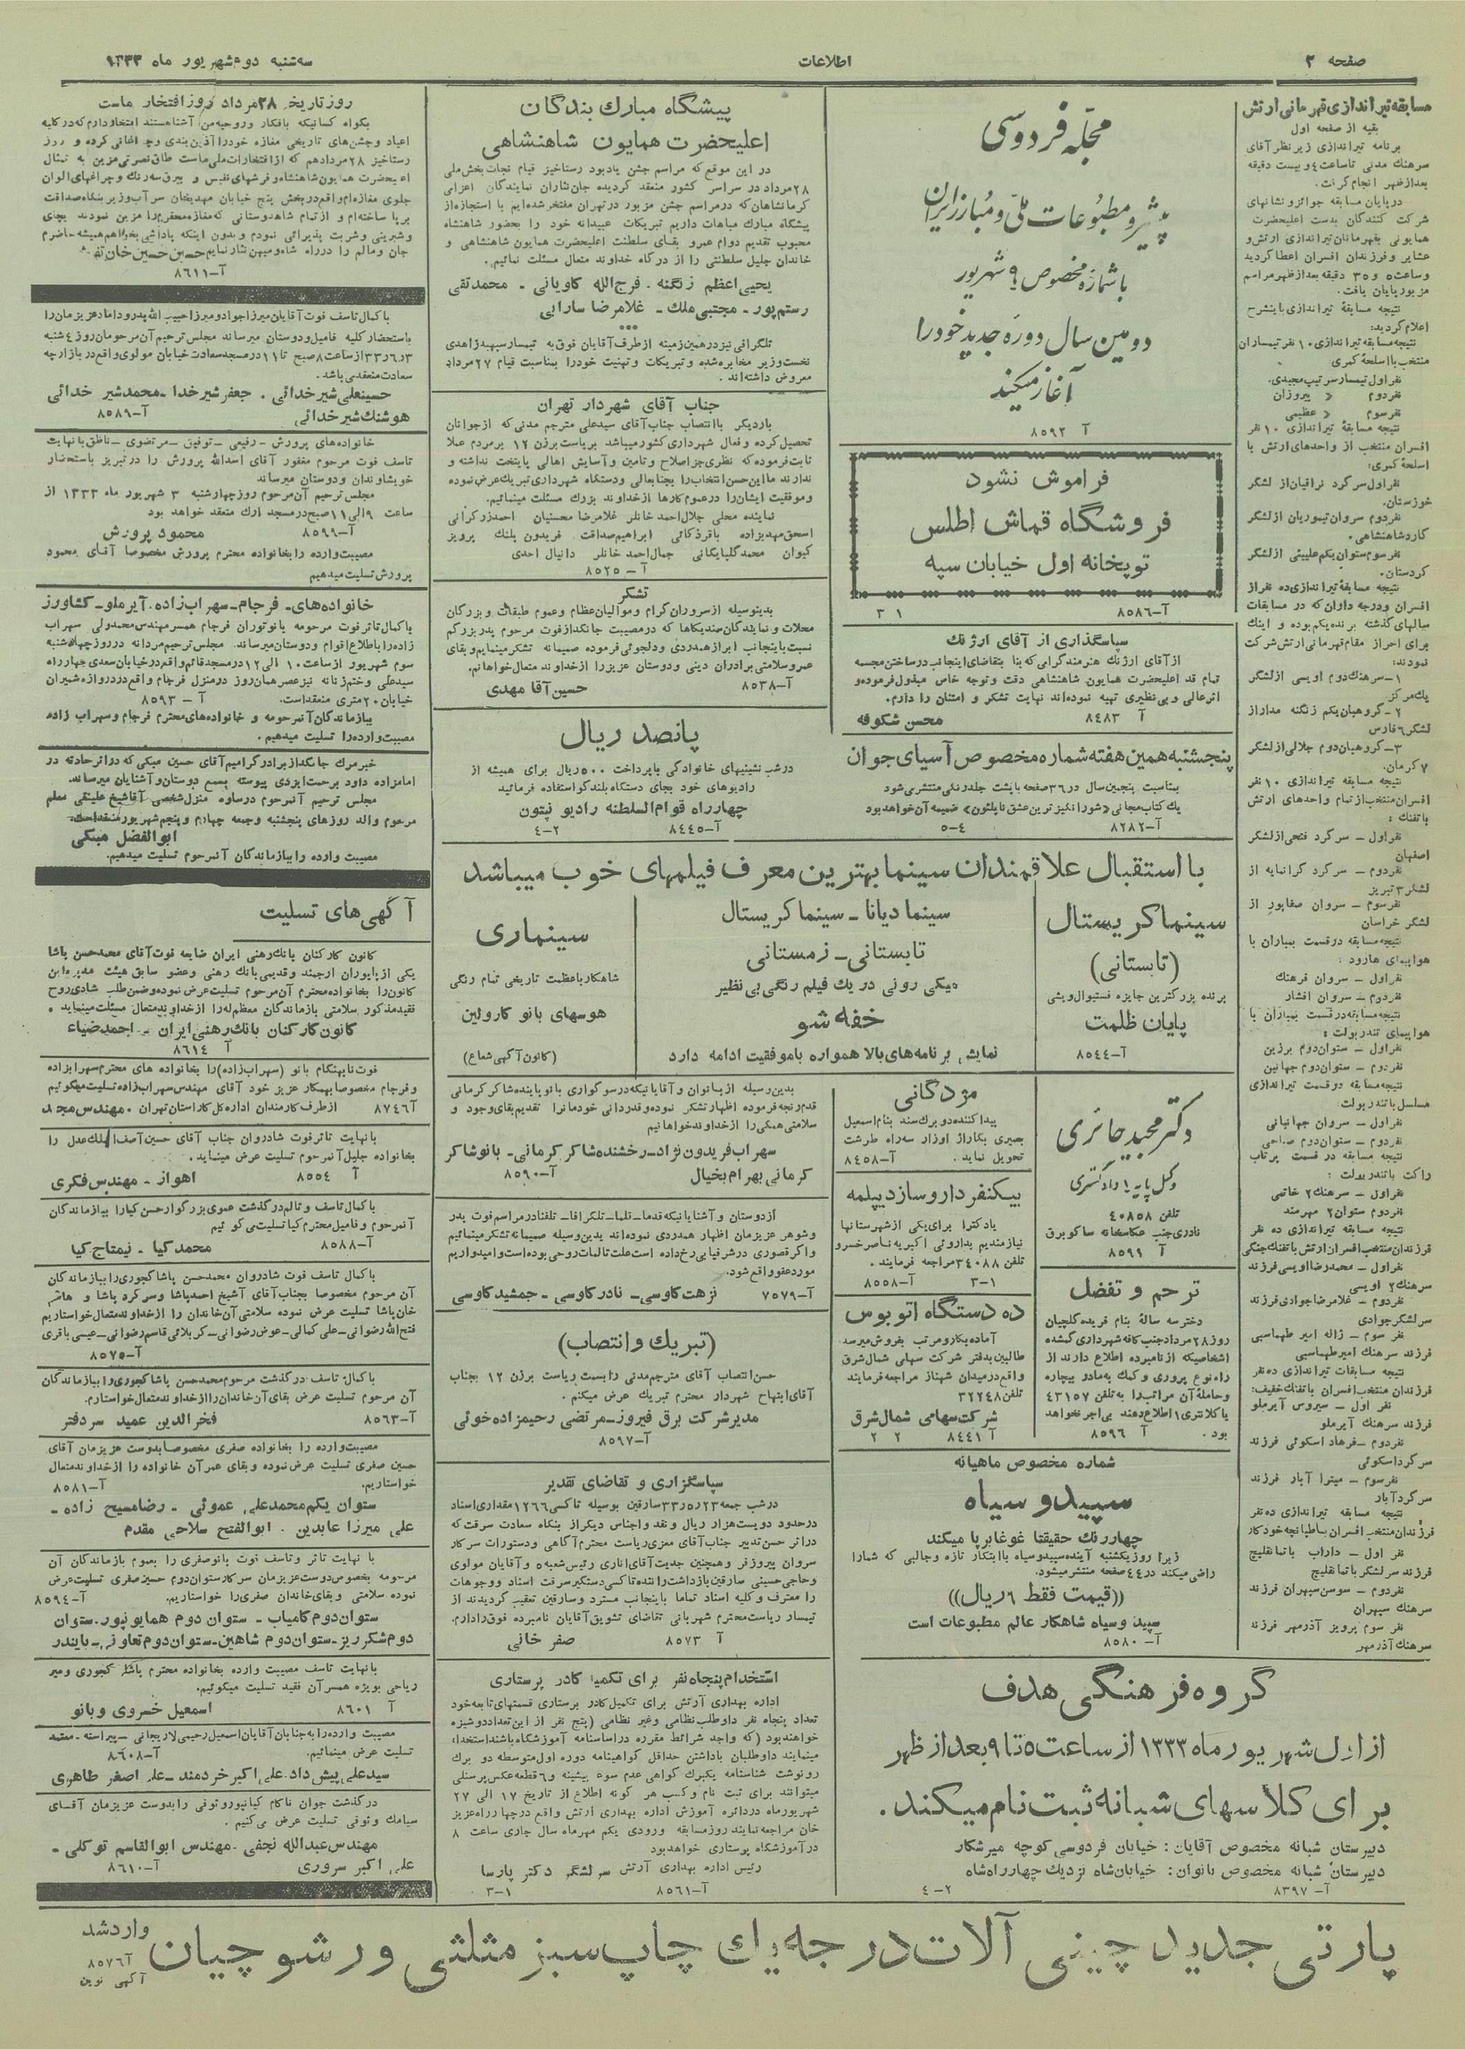 صفحه ۲
اطلاعات
سه‌شنبه دوم شهریور ماه ۱۳۳۳
مسابقه تیراندازی قهرمانی ارتش
بقیه از صفحه اول
برنامه تیراندازی زیر نظر آقای
سرهنگ مدنی تا ساعت ۶ و بیست دقیقه
بعدازظهر انجام گرفت.
در پایان مسابقه جوائز و نشانهای
شرکت کنندگان بدست اعلیحضرت
همایونی بقهرمانان تیراندازی ارتش و
عشایر و فرزندان افسران اعطا گردید
و ساعت ۵ و ۳۵ دقیقه بعدازظهر مراسم
مزبور پایان یافت.
نتیجه مسابقه تیراندازی باینشرح
اعلام گردید:
نتیجه مسابقه تیراندازی ۱۰ نفر تیمساران
منتخب با اسلحه کمری
نفر اول تیمسار سرتیپ مجیدی.
نفر دوم » پیروزان
نفر سوم » عظیمی
نتیجه مسابقه تیراندازی ۱۰ نفر
افسران منتخب از واحدهای ارتش با
اسلحه کمری:
نفر اول سرگرد نراقیان از لشگر
خوزستان.
نفر دوم سروان تیموریان از لشگر
گارد شاهنشاهی.
نفر سوم ستوان یکم علیئی از لشگر
کردستان.
نتیجه مسابقه تیراندازی ده نفر از
افسران و درجه داران که در مسابقات
سالهای گذشته برنده یکم بوده و اینک
برای احراز مقام قهرمانی ارتش شرکت
نمودند:
۱- سرهنگ دوم اویسی از لشگر
یک مرکز
۲- گروهبان یکم زنگنه مدار از
لشگر ۶ فارس
۳- گروهبان دوم جلالی از لشگر
۷ کرمان.
نتیجه مسابقه تیراندازی ۱۰ نفر
افسران منتخب از تمام واحدهای ارتش
با تفنگ:
نفر اول - سرگرد فتحی از لشگر
اصفهان
نفر دوم - سرگرد گرانمایه از
لشگر ۳ تبریز
نفر سوم - سروان صفاپور از
لشگر خراسان
نتیجه مسابقه در قسمت بمباران با
هواپیمای هارود:
نفر اول - سروان فرهنگ
نفر دوم - سروان افشار
نتیجه مسابقه در قسمت بمباران با
هواپیمای تندر بولت:
نفر اول - ستوان دوم برزین
نفر دوم - ستوان دوم جهانبین
نتیجه مسابقه در قسمت تیراندازی
مسلسل با تندر بولت.
نفر اول - سروان جهانبانی
نفر دوم - ستوان دوم صباحی
نتیجه مسابقه در قسمت پرتاب
راکت با تندر بولت:
نفر اول - سرهنگ ۲ خاتمی
نفر دوم ستوان ۲ مهرمند
نتیجه مسابقه تیراندازی ده نفر
فرزندان منتخب افسران ارتش با تفنگ جنگی
نفر اول - محمدرضا اویسی فرزند
سرهنگ ۲ اویسی
نفر دوم - غلامرضا جوادی فرزند
سرلشگر جوادی
نفر سوم - ژاله امیر طهماسبی
فرزند سرهنگ امیر طهماسبی
نتیجه مسابقات تیراندازی ده نفر
فرزندان منتخب افسران با تفنگ خفیف:
نفر اول - سیروس آیرملو
فرزند سرهنگ آیرملو
نفر دوم - فرهاد اسکوئی فرزند
سرگرد اسکوئی
نفر سوم - میترا آبار فرزند
سرگرد آباد
نتیجه مسابقه تیراندازی ده نفر
فرزندان منتخب افسران با طپانچه خودکار
نفر اول - داراب باتمانقلیچ
فرزند سرلشگر باتمانقلیچ
نفر دوم - سوسن سپهران فرزند
سرهنگ سپهران
نفر سوم پرویز آذرمهر فرزند
سرهنگ آذرمهر
مجله فردوسی
پیشرو مطبوعات ملی و مبارز ایران
با شماره مخصوص ۹ شهریور
دومین سال دوره جدید خود را
آغاز میکند
آ ۸۵۹۲
فراموش نشود
فروشگاه قماش اطلس
توپخانه اول خیابان سپه
آ-۸۵۸۶ ۱ ۳
سپاسگذاری از آقای ارژنگ
از آقای ارژنگ هنرمند گرامی که بنا بتقاضای اینجانب در ساختن مجسمه
تمام قد اعلیحضرت همایون شاهنشاهی دقت و توجه خاص مبذول فرموده و
اثر عالی و بی‌نظیری تهیه نموده‌اند نهایت تشکر و امتنان را دارم.
آ ۸۴۸۳ محسن شکوفه
پنجشنبه همین هفته شماره مخصوص آسیای جوان
بمناسبت پنجمین سال در ۳۶ صفحه با پشت جلد رنگی منتشر می‌شود
یک کتاب مجانی «شورانگیزترین عشق ناپلئون» ضمیمه آن خواهد بود
آ-۸۲۸۲ ۴-۵
با استقبال علاقمندان سینما بهترین معرف فیلمهای خوب میباشد
سینما کریستال
(تابستانی)
برنده بزرگترین جایزه فستیوال ویشی
پایان ظلمت
آ-۸۵۴۴
سینما دیانا - سینما کریستال
تابستانی - زمستانی
میکی رونی در یک فیلم رنگی بی نظیر
خفه شو
نمایش برنامه‌های بالا همواره با موفقیت ادامه دارد
سینما ری
شاهکار باعظمت تاریخی تمام رنگی
هوسهای بانو کارولین
(کانون آگهی شعاع)
دکتر مجید حائری
وکیل پایه ۱ دادگستری
تلفن ۴۰۸۵۸
نادری جنب عکاسخانه ساکو برق
آ ۸۵۹۹
مژدگانی
پیدا کننده دو برگ سند بنام اسمعیل
بصیری بکاراژ اوزار سه‌راه طرشت
تحویل نماید. آ-۸۴۵۸
بیکنفر داروساز دیپلمه
یا دکترا برای یکی از شهرستانها
نیازمندیم بداروئی اکبریه ناصرخسرو
تلفن ۳۴۰۸۸ مراجعه فرمایند.
۱-۳ آ-۸۵۵۸
ترحم و تفضل
دختر سه ساله بنام فریده گلچیان
روز ۲۸ مرداد جنب کافه شهرداری گمشده
اشخاصیکه از نامبرده اطلاع دارند از
راه نوع پروری و کمک بمادر بیچاره
و حامله آن مراتب را به تلفن ۴۳۱۵۷
یا کلانتری ۱ اطلاع دهند بی‌اجر نخواهد
بود. آ ۸۵۹۶
ده دستگاه اتوبوس
آماده بکار و مرتب بفروش میرسد
طالبین بدفتر شرکت سهامی شمال شرق
واقع در میدان شهناز مراجعه فرمایند
تلفن ۳۲۲۴۸
شرکت سهامی شمال شرق
آ ۸۴۴۱ ۲ ۲
شماره مخصوص ماهیانه
سپید و سیاه
چهاررنگ حقیقتا غوغا برپا میکند
زیرا روز یکشنبه آینده سپید و سیاه با ابتکار تازه و جالبی که شما را
راضی میکند در ۴۴ صفحه منتشر میشود.
((قیمت فقط ۶ ریال))
سپید و سیاه شاهکار عالم مطبوعات است
آ-۸۵۸۰
گروه فرهنگی هدف
از اول شهریور ماه ۱۳۳۳ از ساعت ۵ تا ۹ بعدازظهر
برای کلاسهای شبانه ثبت نام میکند.
دبیرستان شبانه مخصوص آقایان: خیابان فردوسی کوچه میرشکار
دبیرستان شبانه مخصوص بانوان: خیابان شاه نزدیک چهارراه شاه
آ-۸۳۹۷ ۲-۴
پیشگاه مبارک بندگان
اعلیحضرت همایون شاهنشاهی
در این موقع که مراسم جشن یادبود رستاخیز قیام نجات بخش ملی
۲۸ مرداد در سراسر کشور منعقد گردیده جان نثاران نمایندگان اعزامی
کرمانشاهان که در مراسم جشن مزبور در تهران مفتخر شده‌ایم با استجازه از
پیشگاه مبارک مباهات داریم تبریکات عبیدانه خود را بحضور شاهنشاه
محبوب تقدیم دوام عمر و بقای سلطنت اعلیحضرت همایون شاهنشاهی و
خاندان جلیل سلطنتی را از درگاه خداوند متعال مسئلت نمائیم.
یحیی اعظم زنگنه. فرج‌الله کاویانی - محمدتقی
رستم‌پور - مجتبی ملک - غلامرضا سارابی
•••
تلگرافی نیز در همین زمینه از طرف آقایان فوق به تیمسار سپهبد زاهدی
نخست وزیر مخابره شده و تبریکات و تهنیت خود را بمناسبت قیام ۲۷ مرداد
معروض داشته‌اند.
جناب آقای شهردار تهران
بار دیگر با انتصاب جناب آقای سید علی مترجم مدنی که از جوانان
تحصیل کرده و فعال شهرداری کشور میباشد بریاست برزن ۱۲ بر مردم عملا
ثابت فرموده که نظری جز اصلاح و تامین و آسایش اهالی پایتخت نداشته و
ندارند ما این حسن انتخاب را بجنابعالی و دستگاه شهرداری تبریک عرض نموده
و موفقیت ایشان را در عموم کارها از خداوند بزرگ مسئلت مینمائیم.
نماینده محلی جلال احمد خانلر غلامرضا محسنیان احمد زرکرانی
اسحق مهدیزاده باقر ذکائی ابراهیم صداقت فریدون پلنک پرویز
کیوان محمد گلپایگانی جمال احمد خانلر دانیال احدی
آ - ۸۵۲۵
تشکر
بدینوسیله از سروران گرام و موالیان عظام و عموم طبقات و بزرگان
محلات و نمایندگان سندیکاها که در مصیبت جانگداز فوت مرحوم پدر بزرگم
نسبت باینجانب ابراز همدردی و دلجوئی فرموده صمیمانه تشکر مینمایم و بقای
عمر و سلامتی برادران دینی و دوستان عزیز را از خداوند متعال خواهانم.
آ-۸۵۳۸ حسین آقا مهدی
پانصد ریال
در شب نشینیهای خانوادگی با پرداخت ۵۰۰ ریال برای همیشه از
رادیوهای خود بجای دستگاه بلندگو استفاده فرمائید
چهارراه قوام‌السلطنه رادیو نپتون
آ-۸۴۴۵ ۲-۴
بدین وسیله از بانوان و آقایانیکه در سوگواری بانو پاینده شاکر کرمانی
قدم رنجه فرموده اظهار تشکر نموده و قدردانی خود مانرا تقدیم بقای وجود و
سلامتی همگی را از خداوند خواهانیم
سهراب فریدون نژاد - رخشنده شاکر کرمانی - بانو شاکر
کرمانی بهرام بخیال آ-۸۵۹۰
از دوستان و آشنایانیکه قدما - قلما - تلگرافا - تلفنا در مراسم فوت پدر
و شوهر عزیزمان اظهار همدردی نموده‌اند بدین وسیله صمیمانه تشکر مینمائیم
و اگر قصوری در شرفیابی رخ داده است علت تالمات روحی بوده است و امیدواریم
مورد عفو واقع شود.
آ-۷۵۷۹ نزهت کاوسی - نادر کاوسی - جمشید کاوسی
(تبریک و انتصاب)
حسن انتصاب آقای مترجم مدنی را بسمت ریاست برزن ۱۲ بجناب
آقای ابتهاج شهردار محترم تبریک عرض میکنم.
مدیر شرکت برق فیروز - مرتضی رحیمزاده خوئی
آ-۸۵۹۷
سپاسگزاری و تقاضای تقدیر
در شب جمعه ۳۳/۵/۲۳ سارقین بوسیله تاکسی ۱۲۶۶ مقداری اسناد
در حدود دویست هزار ریال و نقد و اجناس دیگر از بنگاه سعادت سرقت که
در اثر حسن تدبیر جناب آقای معزی ریاست محترم آگاهی و دستورات سرکار
سروان پیروزفر و همچنین جدیت آقای اناری رئیس شعبه و آقایان مولوی
و حاجی حسینی سارقین بازداشت راننده تاکسی دستگیر سرقت اسناد و وجوهات
را معترف و کلیه اسناد تماما باینجانب مسترد و سارقین تعقیب گردیدند از
تیمسار ریاست محترم شهربانی تقاضای تشویق آقایان نامبرده فوق را دارم.
آ ۸۵۷۳ صفر خانی
استخدام پنجاه نفر برای تکمیل کادر پرستاری
اداره بهداری آرتش برای تکمیل کادر پرستاری قسمتهای تابعه خود
تعداد پنجاه نفر داوطلب نظامی وغیر نظامی (پنج نفر از این تعداد دوشیزه
خواهند بود) که واجد شرائط مقرره در اساسنامه آموزشگاه باشند استخدام
مینمایند داوطلبان با داشتن حداقل گواهینامه دوره اول متوسطه دو برگ
رونوشت شناسنامه یکبرگ گواهی عدم سوء پیشینه و ۶ قطعه عکس پرسنلی
میتوانند برای ثبت نام و کسب هر گونه اطلاع از تاریخ ۱۷ الی ۲۷
شهریور ماه در دائره آموزش اداره بهداری آرتش واقع در چهارراه عزیز
خان مراجعه نمایند روز مسابقه ورودی یکم مهرماه سال جاری ساعت ۸
در آموزشگاه پرستاری خواهد بود
رئیس اداره بهداری آرتش سرلشگر دکتر پارسا
آ-۸۵۶۱ ۱-۳
روز تاریخی ۲۸ مرداد روز افتخار ماست
بگواه کسانیکه بافکار و روحیه من آشنا هستند افتخار دارم که در کلیه
اعیاد و جشن‌های تاریخی مغازه خود را آذین بندی و چراغانی کرده و روز
رستاخیز ۲۸ مرداد هم که از افتخارات ملی ماست طاق نصرتی مزین به تمثال
اعلیحضرت همایون شاهنشاه و فرشهای نفیس و بیرق سه رنگ و چراغهای الوان
جلوی مغازه‌ام واقع در بخش پنج خیابان مهدیخان سر آب وزیر بنگاه صداقت
برپا ساخته‌ام و از تمام شاهدوستانی که مغازه محقرم را مزین نمودند بچای
و شیرینی و شربت پذیرائی نمودم و بدون اینکه پاداشی بخواهم همیشه حاضرم
جان و مالم را در راه شاه و میهن نثار نمایم حسین حسین خان
آ-۸۶۱۱
با کمال تاسف فوت آقایان میرزا جواد و میرزا حبیب الله پدر و داماد عزیزمان را
باستحضار کلیه فامیل و دوستان میرساند مجلس ترحیم آن مرحومان روز ۴شنبه
۳۳/۶/۳ از ساعت ۸ صبح تا ۱۱ در مسجد سعادت خیابان مولوی واقع در بازارچه
سعادت منعقد می باشد.
حسینعلی شیرخدائی. جعفر شیرخدا - محمد شیرخدائی
هوشنگ شیرخدائی آ-۸۵۸۹
خانواده‌های پرورش - رفیعی - توفیق - مرتضوی - ناطق با نهایت
تاسف فوت مرحوم مغفور آقای اسدالله پرورش را در تبریز باستحضار
خویشاوندان و دوستان میرساند
مجلس ترحیم آن مرحوم روز چهارشنبه ۳ شهریور ماه ۱۳۳۳ از
ساعت ۹ الی ۱۱ صبح در مسجد ارک منعقد خواهد بود
آ-۸۵۹۹ محمود پرورش
مصیبت وارده را بخانواده محترم پرورش مخصوصا آقای محمود
پرورش تسلیت میدهیم
خانواده‌های - فرجام - سهراب زاده. آیرملو - کشاورز
با کمال تاثر فوت مرحومه بانو توران فرجام همسر مهندس محمدولی سهراب
زاده را باطلاع اقوام و دوستان میرساند. مجلس ترحیم مردانه در روز چهارشنبه
سوم شهریور از ساعت ۱۰ الی ۱۲ در مسجد قائم واقع در خیابان سعدی چهارراه
سید علی و ختم زنانه نیز عصر همان روز در منزل فرجام واقع در دروازه شمیران
خیابان ۲۰ متری منعقد است. آ - ۸۵۹۳
ببازماندگان آنمرحومه و خانواده‌های محترم فرجام و سهراب زاده
مصیبت وارده را تسلیت میدهیم.
خبر مرگ جانگداز برادر گرامیم آقای حسین میکی که در اثر حادثه در
امامزاده داود برحمت ایزدی پیوسته بسمع دوستان و آشنایان میرساند.
مجلس ترحیم آنمرحوم در ساوه منزل شخصی آقا شیخ علینقی معلم
مرحوم والد روزهای پنجشنبه و جمعه چهارم و پنجم شهریور منعقد است.
ابوالفضل میکی
مصیبت وارده را ببازماندگان آنمرحوم تسلیت میدهیم.
آگهی‌های تسلیت
کانون کارکنان بانک رهنی ایران ضایعه فوت آقای محمدحسن پاشا
یکی از پایوران ارجمند و قدیمی بانک رهنی و عضو سابق هیئت مدیره این
کانون را بخانواده محترم آن مرحوم تسلیت عرض نموده و ضمن طلب شادی روح
فقید مذکور سلامتی بازماندگان معظم له را از خداوند متعال مسئلت مینماید.
کانون کارکنان بانک رهنی ایران - احمد ضیاء
آ ۸۶۱۴
فوت نابهنگام بانو (سهراب زاده) را بخانواده های محترم سهرابزاده
و فرجام مخصوصا بهمکار عزیز خود آقای مهندس سهراب‌زاده تسلیت میگوئیم
آ ۸۷۴۶ از طرف کارمندان اداره کل کار استان تهران - مهندس مجد
با نهایت تاثر فوت شادروان جناب آقای حسین آصف الملک عدل را
بخانواده جلیل آنمرحوم تسلیت عرض مینماید.
آ ۸۵۵۴ اهواز - مهندس فکری
با کمال تاسف و تالم درگذشت عموی بزرگوار حسن کیا را ببازماندگان
آنمرحوم و فامیل محترم کیا تسلیت می‌گوئیم
آ-۸۵۸۸ محمد کیا - نیمتاج کیا
با کمال تاسف فوت شادروان محمدحسن پاشا کجوری را ببازماندگان
آن مرحوم مخصوصا بجناب آقای آشیخ احمد پاشا و سرگرد پاشا و هاشم
خان پاشا تسلیت عرض نموده سلامتی آن خاندان را از خداوند متعال خواستاریم
فتح الله رضوانی - علی کمالی - عوض رضوانی - کربلائی قاسم رضوانی - عیسی باقری
آ-۸۵۷۵
با کمال تاسف درگذشت مرحوم محمدحسن پاشا کجوری را ببازماندگان
آن مرحوم تسلیت عرض بقای آن خاندان را از خداوند متعال خواستارم.
آ-۸۵۶۳ فخرالدین عمید سردفتر
مصیبت وارده را بخانواده صفری مخصوصا بدوست عزیزمان آقای
حسین صفری تسلیت عرض نموده و بقای عمر آن خانواده را از خداوند متعال
خواستاریم. آ-۸۵۸۱
ستوان یکم محمدعلی عموئی - رضا مسیح زاده -
علی میرزا عابدین. ابوالفتح سلاحی مقدم
با نهایت تاثر و تاسف فوت بانو صفری را بعموم بازماندگان آن
مرحومه بخصوص دوست عزیزمان سرکار ستوان دوم حسین صفری تسلیت عرض
نموده سلامتی و بقای خاندان صفری را خواستاریم. آ-۸۵۹۴
ستوان دوم کامیاب - ستوان دوم همایونپور - ستوان
دوم شکرریز - ستوان دوم شاهین - ستوان دوم تعاونی - پایندر
با نهایت تاسف مصیبت وارده بخانواده محترم پاشا کجوری و میر
ریاحی بویژه همسر آن فقید تسلیت میگوئیم.
آ ۸۶۰۱ اسمعیل خسروی و بانو
مصیبت وارده را به جنابان آقایان اسمعیل رحیمی لاریجانی - پیراسته -
تسلیت عرض مینمائیم. آ-۸۶۰۸
سید علی پیش داد. علی اکبر خردمند - علی اصغر طاهری
درگذشت جوان ناکام کیانپور وثوقی را بدوست عزیزمان آقای
سیامک وثوقی تسلیت عرض می‌کنیم.
مهندس عبدالله نجفی. مهندس ابوالقاسم توکلی -
علی اکبر سروری آ-۸۶۱۰
پارتی جدید چینی آلات درجه یک چاپ سبز مثلثی ورشوچیان وارد شد
آ ۸۵۷۶
آگهی نوین